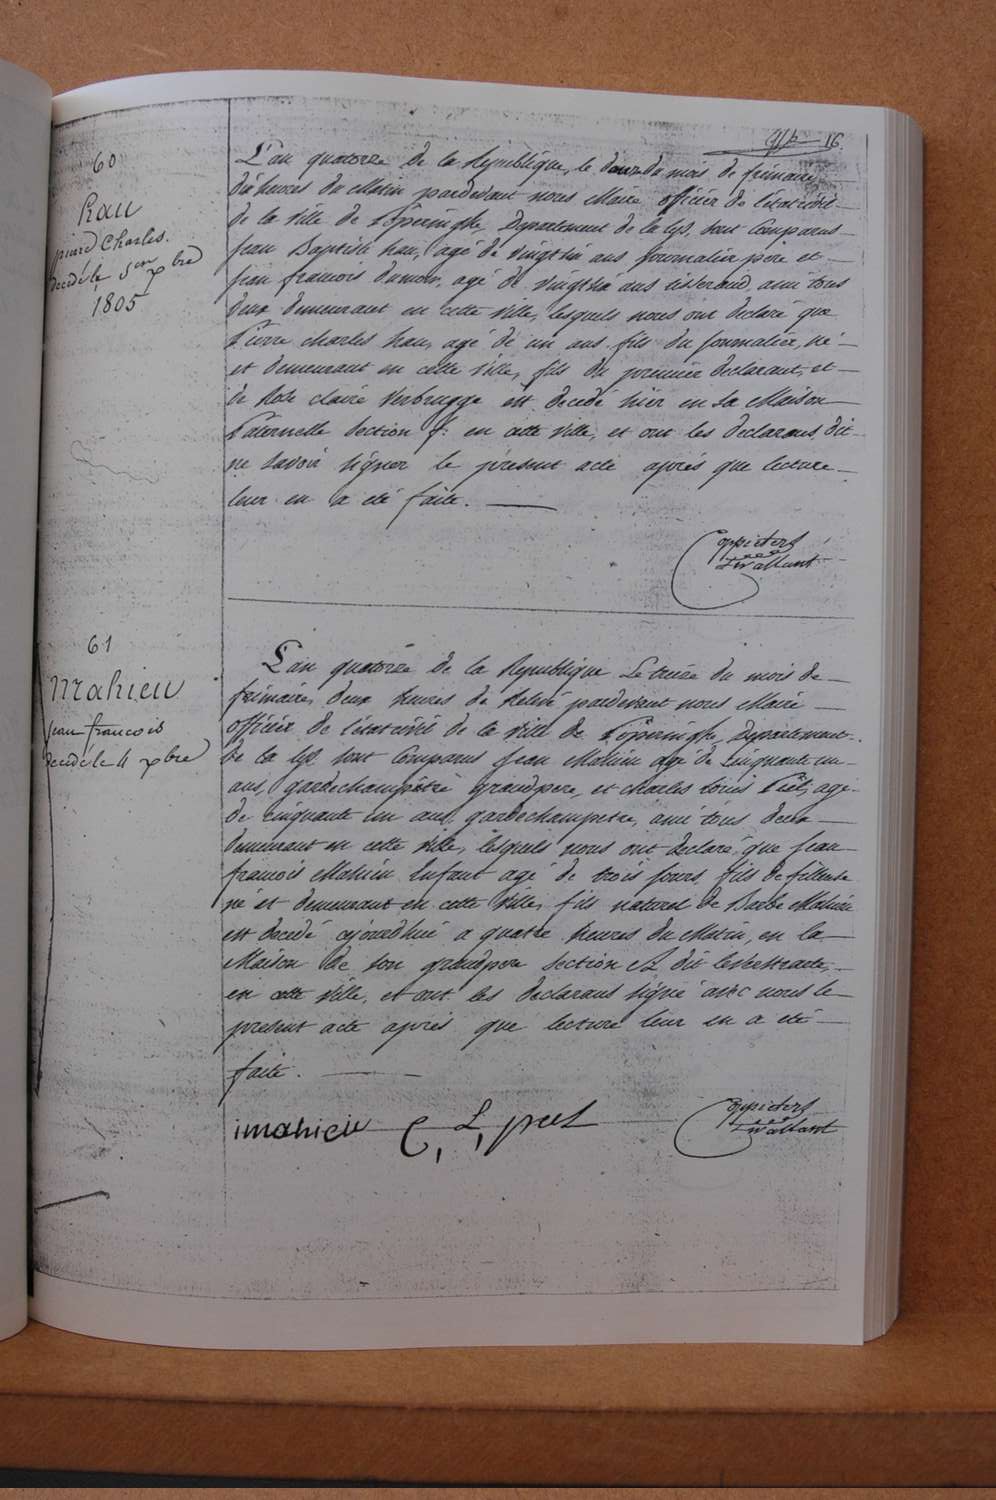 16.
60
Rau
pierre Charles.
decédé le 5en xbre
1805
L'an quatorze de la République, le douze du mois de frimaire
dix heures du Matin pardevant nous Maire officier de l'état civil
de la ville de Poperinghe, Departement de la Lys, sont Comparus
Jean Baptiste Rau, agé de vingt six ans Journalier père et
jean francois dumon, agé de vingt six ans tisserand, ami tous
deux demeurant en cette ville, lesquels nous ont declaré que
Pierre charles Rau, agé de un ans, fils du Journalier, né
et demeurant en cette ville, fils du premier declarant, et
de Rose claire Verbrugge est decedé hier en sa Maison
Paternelle Section f: en cette ville, et ont les declarans dit
ne savoir signer le présent acte après que lecture
leur en a été faite.
Coppieters
Stevallant
61
Mahieu
jean francois
decédé le 4 xbre
L'an quatorze de la République Le treize du mois de
frimaire, deux heures de Relevé pardevant nous Maire
officier de l'état civil de la ville de Poperinghe, Departement
de la Lys, sont Comparus Jean Mahieu agé de Cinquante un
ans, gardechampêtre grandpere, et charles louis Piel, agé
de cinquante un ans, gardechampetre, ami tous deux
demeurant en cette ville, lesquels nous ont declaré, que Jean
francois Mahieu Enfant agé de trois jours, fils de fileuse
né et demeurant en cette ville, fils naturel de Barbe Mahieu
est decedé ajourdhui a quatre heures du Matin, en la
Maison de son grandpere Section A, dit
en cette ville, et ont les declarans signé avec nous le
present acte après que lecture leur en a été
faite.
i mahieu C, L, piel
Coppieters